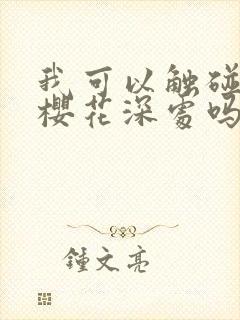 我可以触碰
樱花深处吗
鍾文亮